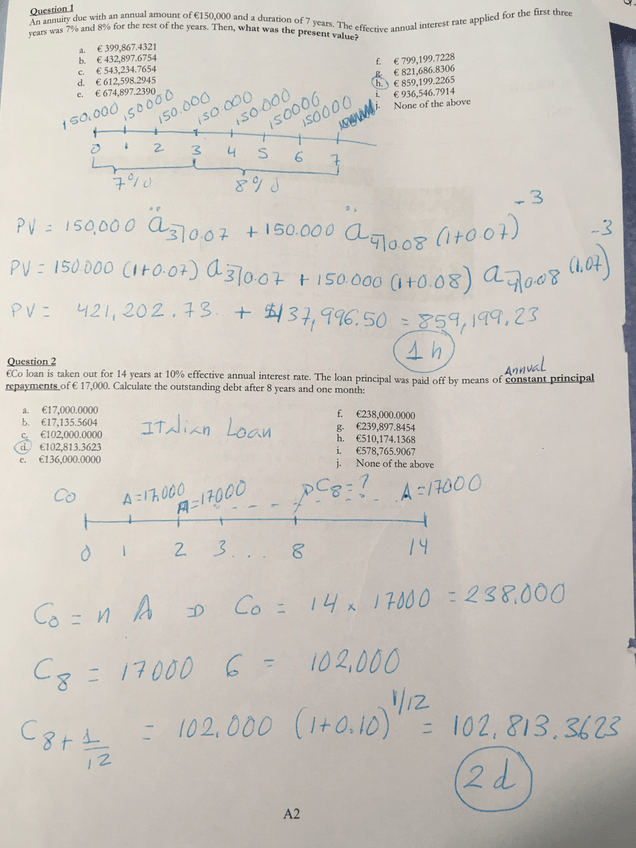 Question 1
An annuity due with an annual amount of €150,000 and a duration of 7 years. The effective annual interest rate applied for the first three
years was 7% and 8% for the rest of the years. Then, what was the present value?
a. € 399,867.4321
b. € 432,897.6754
c. € 543,234.7654
d. € 612,598.2945
e. € 674,897.2390
f. € 799,199.7228
g. € 821,686.8306
h. € 859,199.2265
i. € 936,546.7914
j. None of the above
150,000 150000 150.000 150.000 150.000 150000 150000
0 1 2 3 4 5 6 7
7% 8%
PV = 150,000 ä3⌉0.07 + 150.000 ä4⌉0.08 (1+0.07)^-3
PV = 150.000 (1+0.07) a3⌉0.07 + 150.000 (1+0.08) a4⌉0.08 (1.07)^-3
PV = 421,202.73 + 437,996.50 = 859,199.23
1 h
Question 2
€Co loan is taken out for 14 years at 10% effective annual interest rate. The loan principal was paid off by means of Annual constant principal
repayments of € 17,000. Calculate the outstanding debt after 8 years and one month:
a. €17,000.0000
b. €17,135.5604
c. €102,000.0000
d. €102,813.3623
e. €136,000.0000
f. €238,000.0000
g. €239,897.8454
h. €510,174.1368
i. €578,765.9067
j. None of the above
Italian Loan
Co A=17,000 A=17000 C8=? A=17000
0 1 2 3 . . . 8 14
Co = n A ⇒ Co = 14 x 17000 = 238,000
C8 = 17000 6 = 102,000
C8+1/12 = 102,000 (1+0.10)^1/12 = 102,813.3623
2 d
A2